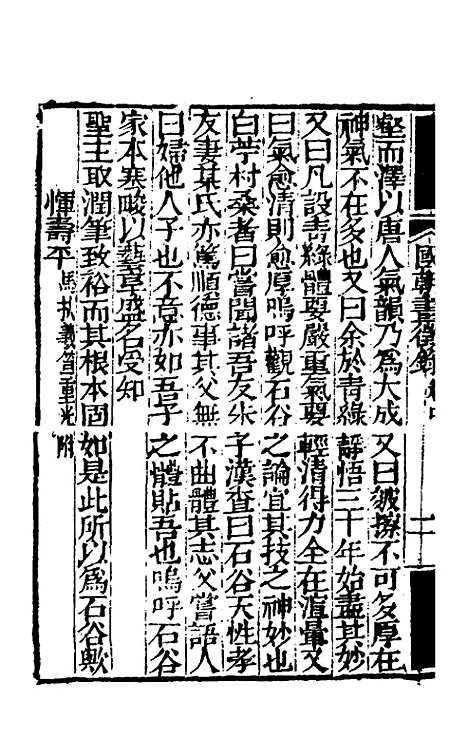 國朝畫徵錄 卷中 二
壑而澤以唐人氣韻乃為大成又曰皴擦不可多厚在
神氣不在多也又曰余於青綠靜悟三十年始盡其妙
又曰凡設青綠體要嚴重氣要輕清得力全在渲暈又
曰氣愈清則愈厚嗚呼觀石谷之論宜其技之神妙也
白苧村桑者曰嘗聞諸吾友朱子漢查曰石谷天性孝
友妻某氏亦篤順德事其父無不曲體其志父嘗語人
曰婦他人子也不意亦如吾子之體貼吾也嗚呼石谷
家本寒畯以藝事盛名受知
聖主取潤筆致裕而其根本固如是此所以為石谷歟
惲壽平 馬扶羲 重光附